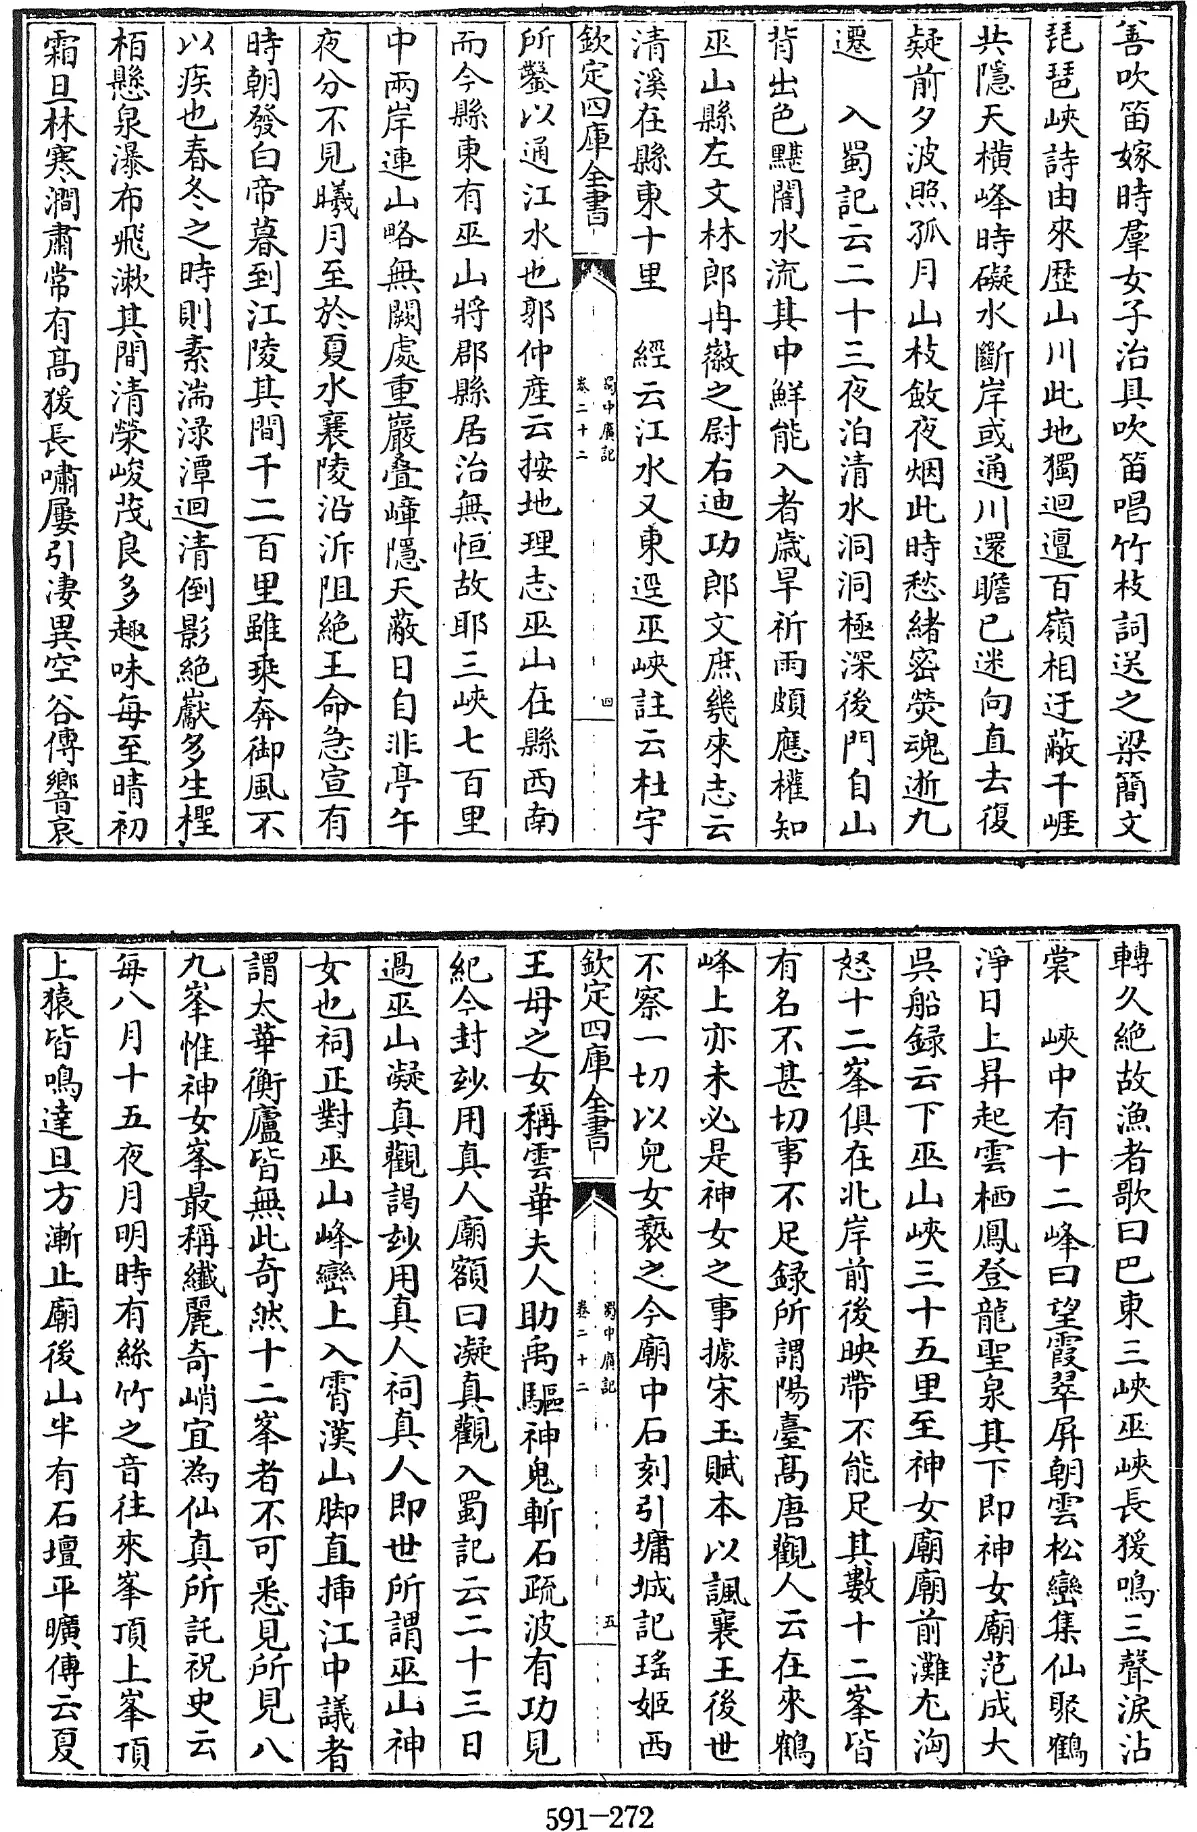 善吹笛嫁時羣女子治具吹笛唱竹枝詞送之梁簡文
琵琶峽詩由來歷山川此地獨迴邅百嶺相迂蔽千崕
共隱天横峰時礙水斷岸或通川還瞻已迷向直去復
疑前夕波照孤月山枝斂夜烟此時愁緒密焭魂逝九
遷　入蜀記云二十三夜泊清水洞洞極深後門自山
背出色黮闇水流其中鮮能入者歳旱祈雨頗應權知
巫山縣左文林郎冉徽之尉右迪功郎文庶幾來志云
清溪在縣東十里　經云江水又東逕巫峽註云杜宇
欽定四庫全書
蜀中廣記
卷二十二
四
所鑿以通江水也郭仲産云按地理志巫山在縣西南
而今縣東有巫山將郡縣居治無恒故耶三峽七百里
中兩岸連山略無闕處重巖疊嶂隱天蔽日自非亭午
夜分不見曦月至於夏水襄陵沿泝阻絶王命急宣有
時朝發白帝暮到江陵其間千二百里雖乘奔御風不
以疾也春冬之時則素湍淥潭迴清倒影絶巘多生檉
栢懸泉瀑布飛漱其間清榮峻茂良多趣味每至晴初
霜旦林寒澗肅常有髙猨長嘯屢引凄異空谷傳響哀
轉久絶故漁者歌曰巴東三峽巫峽長猨鳴三聲淚沾
裳　峽中有十二峰曰望霞翠屏朝雲松巒集仙聚鶴
淨日上昇起雲栖鳳登龍聖泉其下即神女廟范成大
吳船録云下巫山峽三十五里至神女廟廟前灘尢洶
怒十二峯俱在北岸前後映帶不能足其數十二峯皆
有名不甚切事不足録所謂陽臺髙唐觀人云在來鶴
峰上亦未必是神女之事據宋玉賦本以諷襄王後世
不察一切以兒女褻之今廟中石刻引墉城記瑤姬西
欽定四庫全書
蜀中廣記
卷二十二
五
王母之女稱雲華夫人助禹驅神鬼斬石疏波有功見
紀今封玅用真人廟額曰凝真觀入蜀記云二十三日
過巫山凝真觀謁玅用真人祠真人即世所謂巫山神
女也祠正對巫山峰巒上入霄漢山脚直揷江中議者
謂太華衡廬皆無此竒然十二峯者不可悉見所見八
九峯惟神女峯最稱纖麗奇峭宜為仙真所託祝史云
每八月十五夜月明時有絲竹之音往來峯頂上峯頂
上猿皆鳴達旦方漸止廟後山半有石壇平曠傳云夏
591-272